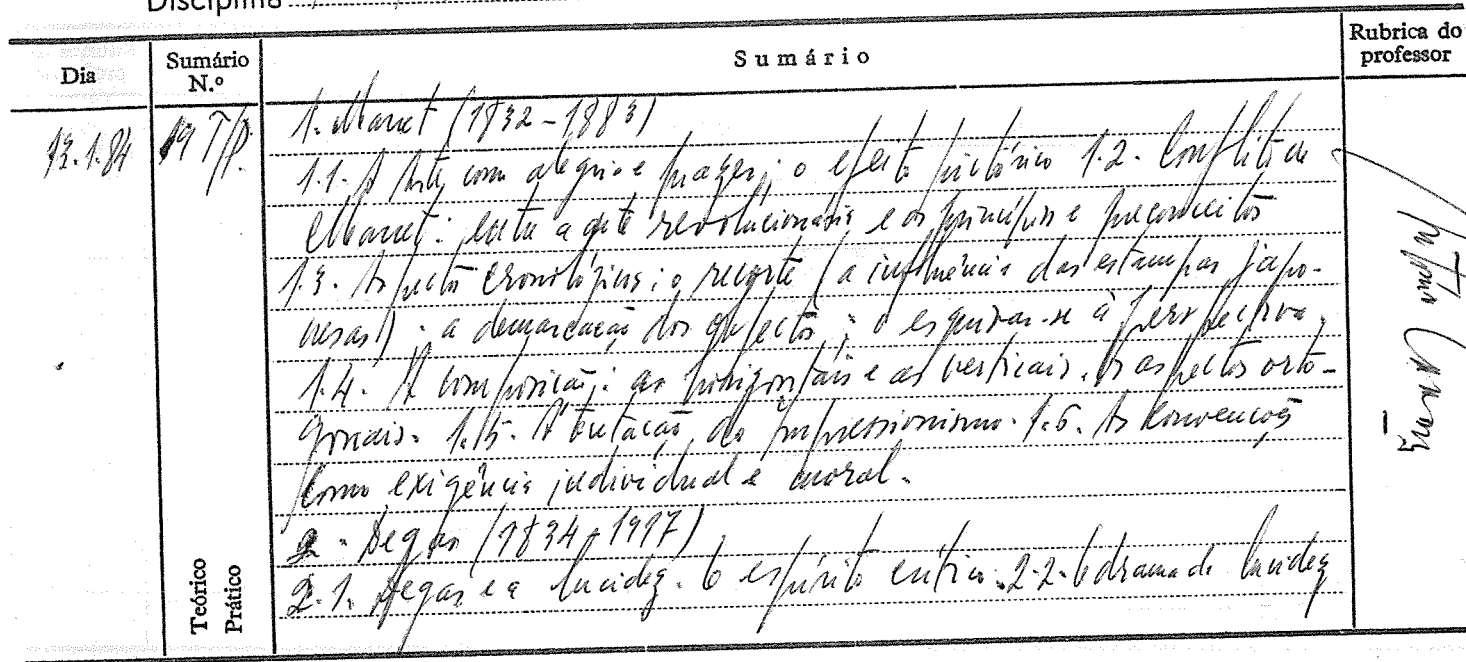 Disciplina
Dia
Sumário N.º
Sumário
Rubrica do professor
13.1.84
19 T/P.
1. Manet (1832-1883)
1.1. A Arte como alegria e prazer; o efeito pictórico 1.2. Conflito de
Manet: entre a arte revolucionária e os princípios e preconceitos
1.3. Aspectos cronológicos; o recorte (a influência das estampas japo-
nesas); a demarcação dos objectos; o esquivar-se à perspectiva.
1.4. A composição: as horizontais e as verticais. Os aspectos orto-
gonais. 1.5. A tentação do impressionismo. 1.6. As convenções
como exigência individual e moral.
2. Degas (1834-1917)
2.1. Degas e a lucidez. O espírito crítico. 2.2. O drama da lucidez
Teórico
Prático